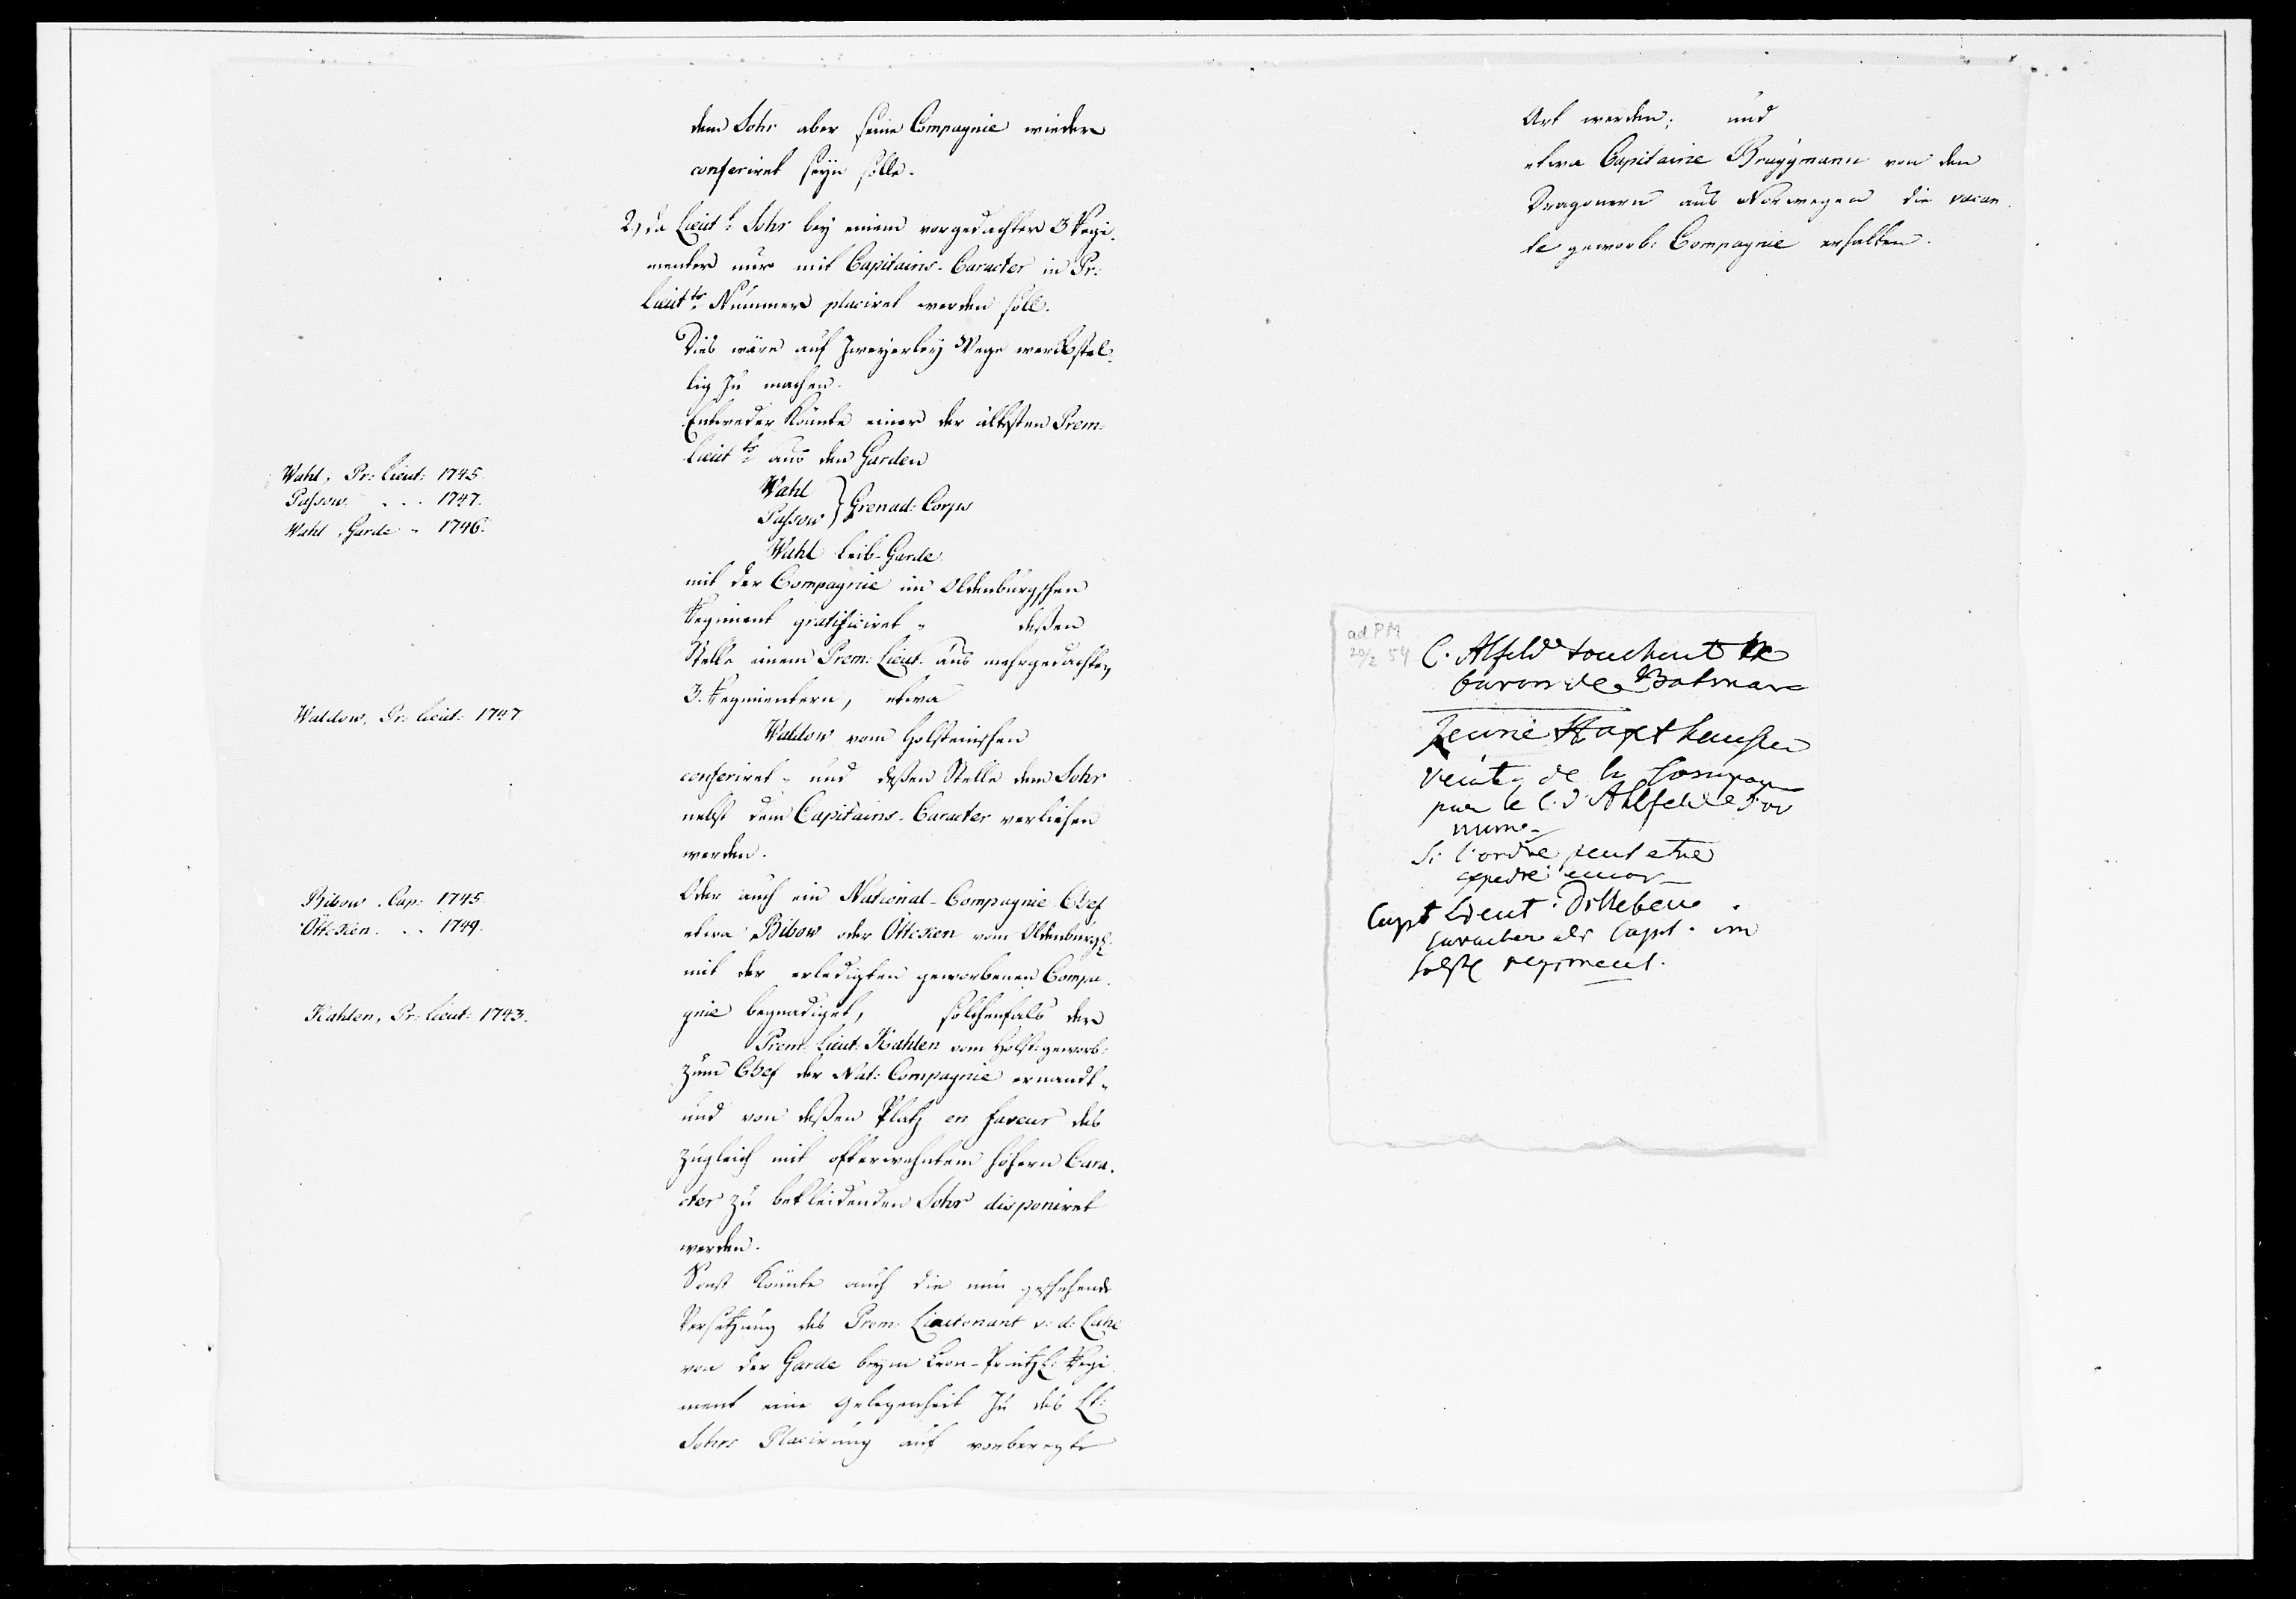 dem Sohr aber seine Compagnie wieder
conferiret seyn solle.
2.) da Lieut: Sohr bey einem vorgedachter 3 Regi-
menter nur mit Capitains-Caracter in Pr:
Lieutts: Nummer placiret werden soll.
Dies wäre auf zweyerley Wege werkstel-
lig zu machen.
Entweder könnte einer der ältesten Prem:
Lieutts: aus den Garden
Wahl, Pr: Lieut: 1745.
Passow. . . . 1747.
Wahl, Garde " 1746.
Wahl
Passow } Grenad: Corps
Wahl Leib-Garde
mit der Compagnie im Oldenburgschen
Regiment gratificiret " deßen
Stelle einem Prem: Lieut. aus mehrgedachten
3. Regimentern, etwa
Waldow, Pr: Lieut: 1747.
Waldow vom Holsteinischen
conferiret " und deßen Stelle dem Sohr
nebst dem Capitains-Caracter verliehen
werden.
Bibow. Cap: 1745.
Ötteken. . . 1749.
Oder auch ein National-Compagnie-Chef
etwa Bibow oder Ötteken vom Oldenburgs:
mit der erledigten geworbenen Compa-
gnie begnadiget, solchenfals der
Kahlen, Pr: Lieut: 1743.
Prem: Lieut: Kahlen vom Holst: geworb:
zum Chef der Nat: Compagnie ernandt "
und von deßen Platz en faveur des
zugleich mit ofterwehntem höhern Cara-
cter zu bekleidenden Sohr disponiret
werden.
Sonst könnte auch die nun geschehende
Versetzung des Prem: Lieutenant v: d: Lühe
von der Garde beym Cron-Printzl: Regi-
ment eine Gelegenheit zu des Lt:
Sohrs Placirung auf vorberegte
Art werden; und
etwa Capitaine Bruggmann von den
Dragonern aus Norwegen die vacan-
te geworb: Compagnie erhalten.
ad PM
20/2 54
C. Alfeld touchent le
baron de
Jeune Haxthausen
de la Compagn
par le C. d'Ahlfeld
Si l'ordre peut etre
Capt Lieut.
caracter als Capt. im
regiment.